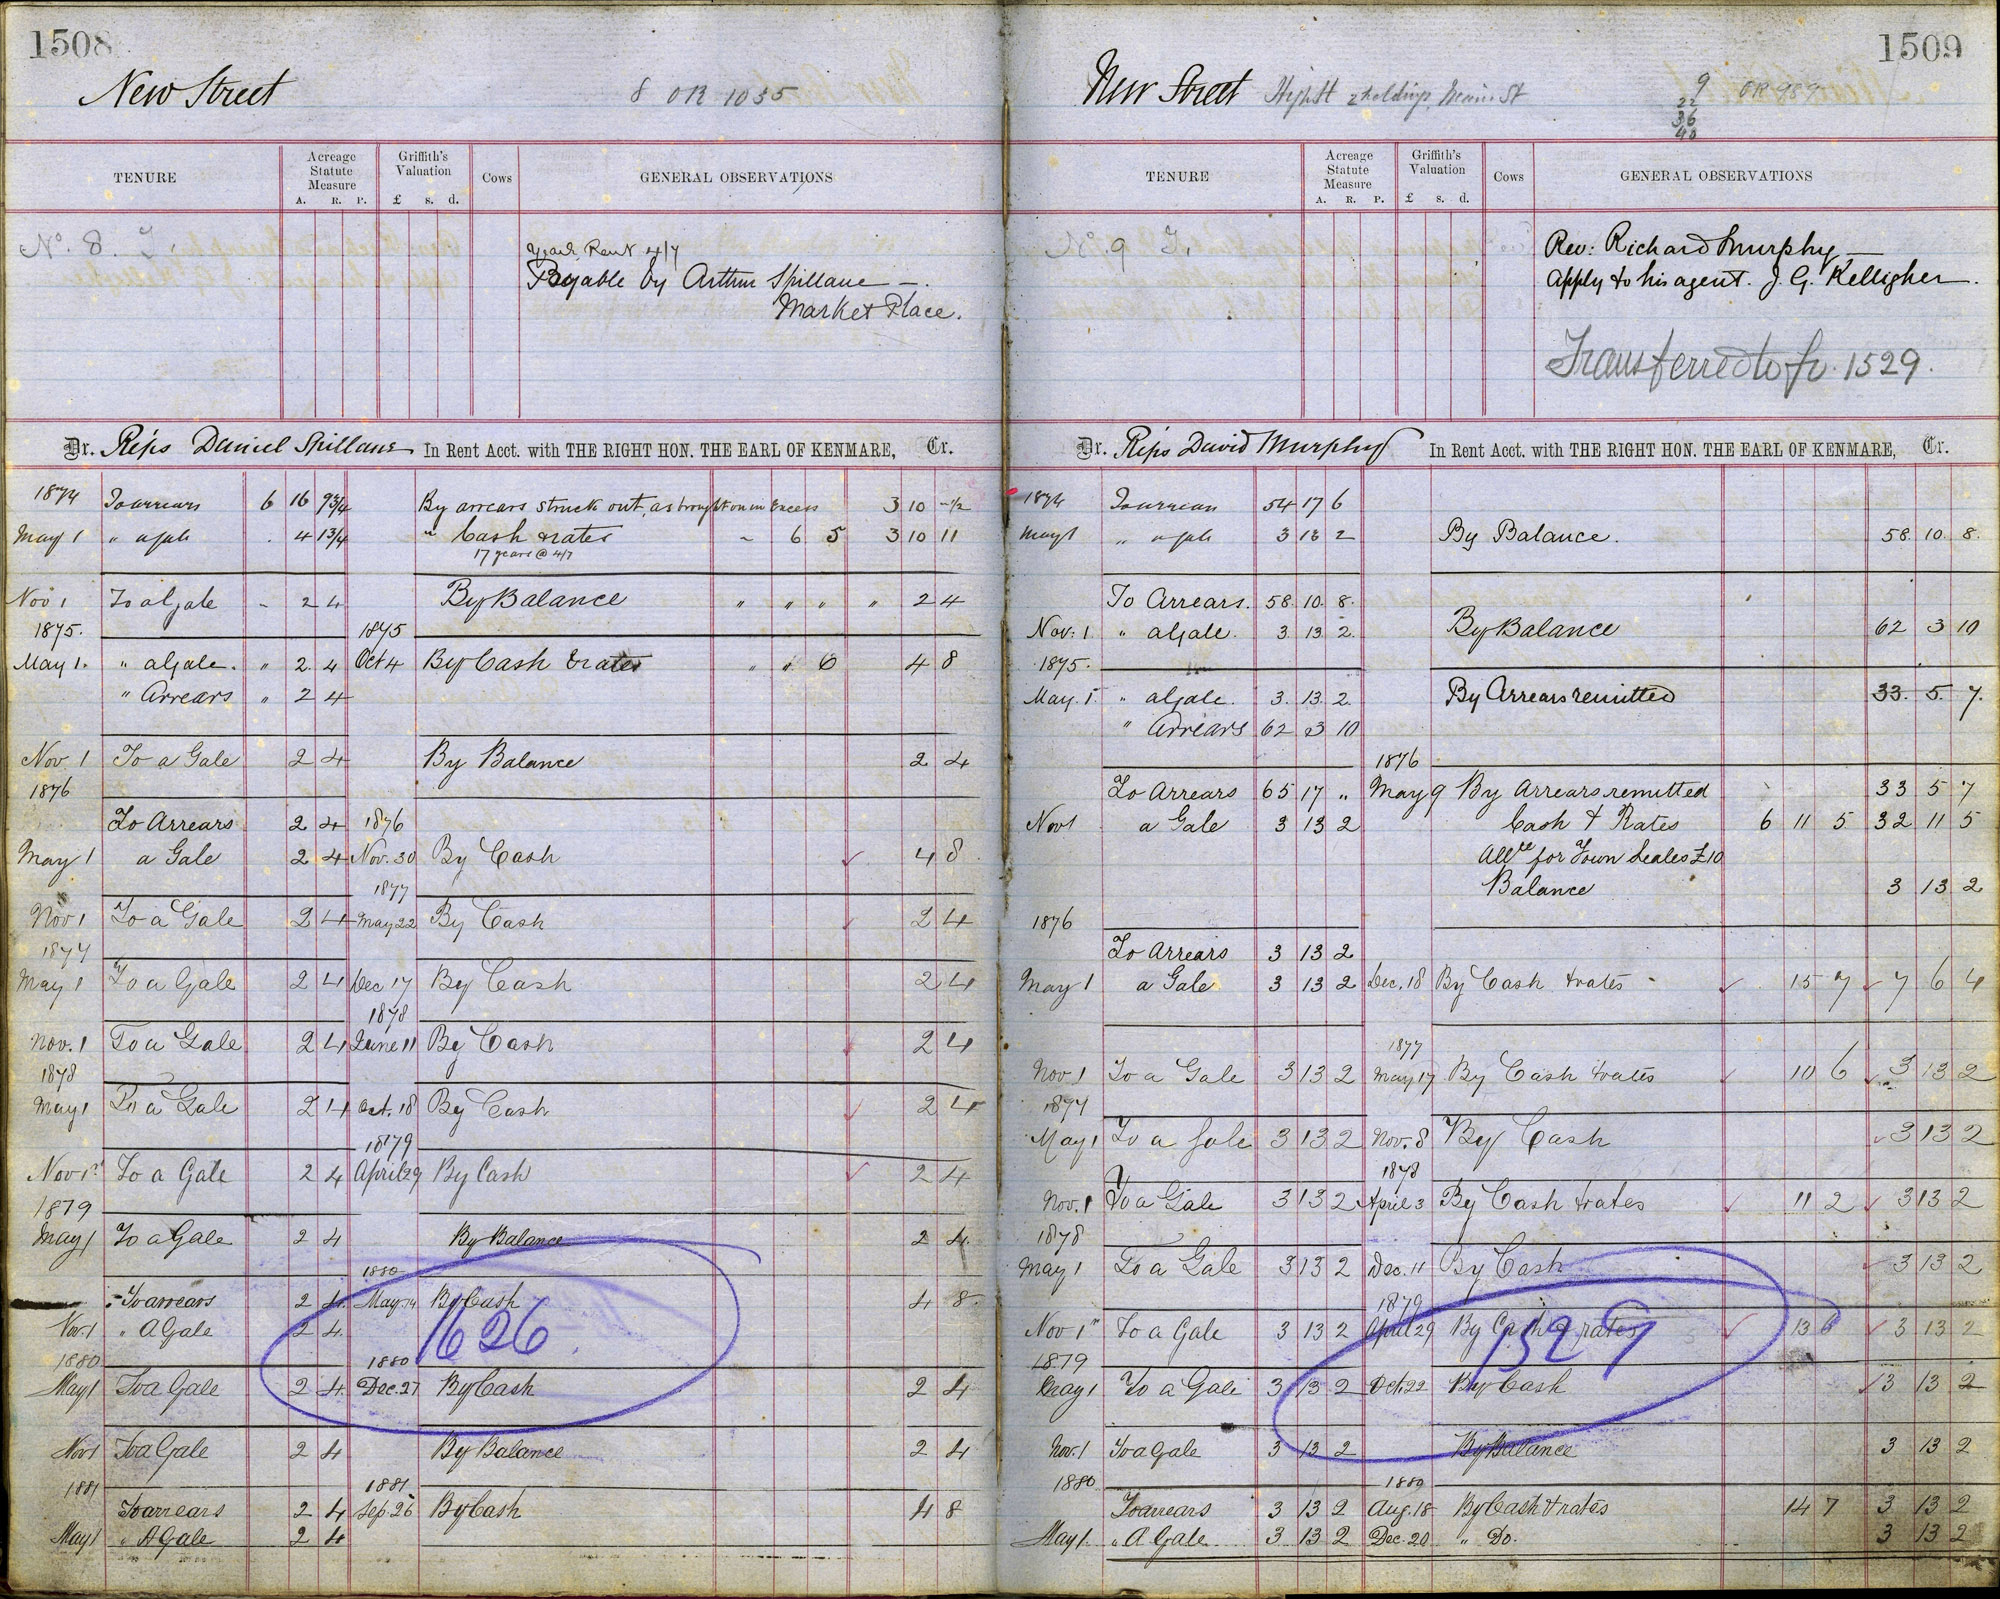 1508
New Street
8 OR 1035
TENURE
Acreage Statute Measure
A. R. P.
Griffith's Valuation
£ s. d.
Cows
GENERAL OBSERVATIONS
No. 8
Rent 4/7
Payable by Arthur Spillane —.
Market Place.
Dr. Reps Daniel Spillane In Rent Acct. with THE RIGHT HON. THE EARL OF KENMARE, Cr.
1874 To arrears 6 16 9 3/4 By arrears struck out, as brought on in Excess 3 10 -1/2
May 1 " 4 1 3/4 " Cash & rates ~ 6 5 3 10 11
17 years @ 4/7
Nov 1 To a Gale - 2 4 By Balance " " " " 2 4
1875. 1875
May 1. " a Gale. " 2. 4 Oct 4 By Cash & rates " " 6 4 8
" Arrears " 2 4
Nov 1 To a Gale 2 4 By Balance 2 4
1876
To Arrears 2 4 1876
May 1 a Gale 2 4 Nov. 30 By Cash 4 8
1877
Nov 1 To a Gale 2 4 May 22 By Cash 2 4
1877
May 1 To a Gale 2 4 Dec 17 By Cash 2 4
1878
Nov. 1 To a Gale 2 4 June 11 By Cash 2 4
1878
May 1 To a Gale 2 4 Oct. 18 By Cash 2 4
1879
Nov 1 To a Gale 2 4 April 29 By Cash 2 4
1879
May 1 To a Gale 2 4 By Balance 2 4.
1880
To arrears 2 4. May 14 By Cash 4 8.
Nov. 1 " A Gale 2 4.
1626
1880 1880
May 1 To a Gale 2 4. Dec. 27 By Cash 2 4
Nov 1 To a Gale 2 4 By Balance 2 4
1881 1881
To arrears 2 4 Sep. 26 By Cash 4 8
May 1 " A Gale 2 4
1509
New Street High St 2 holdings Main St
9 OR 987
22
36
40
TENURE
Acreage Statute Measure
A. R. P.
Griffith's Valuation
£ s. d.
Cows
GENERAL OBSERVATIONS
No. 9
Rev: Richard Murphy —
Apply to his agent. J. G. Kelligher.
Transferred to fo. 1529.
Dr. Reps David Murphy In Rent Acct. with THE RIGHT HON. THE EARL OF KENMARE, Cr.
1874 To arrears 54 17 6
May 1 " 3 13 2 By Balance. 58. 10. 8.
To Arrears. 58. 10. 8.
Nov: 1. " a Gale. 3. 13. 2. By Balance 62 3 10
1875.
May. 1. " a Gale. 3. 13. 2. By Arrears remitted 33. 5. 7.
" Arrears 62 3 10
1876
To Arrears 65 17 " May 9 By Arrears remitted 33 5 7
Nov 1 a Gale 3 13 2 Cash & Rates 6 11 5 32 11 5
Allce for Town Scales £10
Balance 3 13 2
1876
To Arrears 3 13 2
May 1 a Gale 3 13 2 Dec. 18 By Cash & rates - 15 7 7 6 4
1877
Nov. 1 To a Gale 3 13 2 May 17 By Cash & rates 10 6 3 13 2
1877
May 1 To a Gale 3 13 2 Nov. 8 By Cash 3 13 2
1878
Nov. 1 To a Gale 3 13 2 April 3 By Cash & rates 11 2 3 13 2
1878
May 1 To a Gale 3 13 2 Dec. 11 By Cash 3 13 2
1879
Nov 1 To a Gale 3 13 2 April 29 By Cash & rates 13 6 3 13 2
1529
1879
May 1 To a Gale 3 13 2 Oct. 22 By Cash 3 13 2
Nov. 1 To a Gale 3 13 2 By Balance 3 13 2
1880 1880
To arrears 3 13 2 Aug. 18 By Cash & rates 14 7 3 13 2
May 1. " A Gale 3 13 2 Dec. 20 " Do. 3 13 2